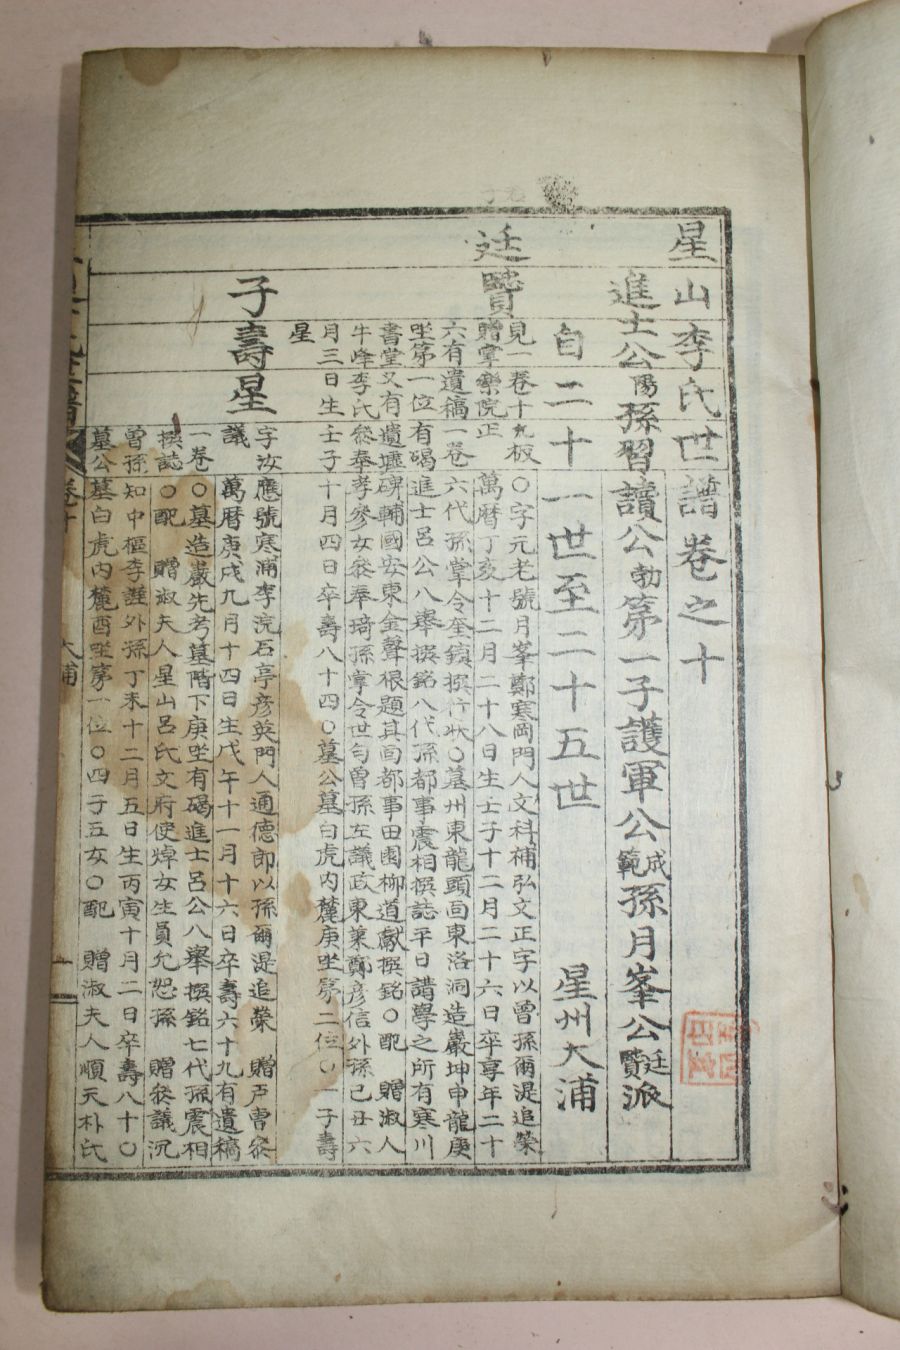 星山李氏世譜卷之十
進士公陽孫習讀公勃第一子護軍公成範孫月峯公廷賢派
自二十一世至二十五世 星州大浦
廷賢
見一卷十九板○字元老號月峯鄭寒岡門人文科補弘文正字以曾孫爾湜追榮
贈掌樂院正 萬曆丁亥十二月二十八日生壬子十二月二十六日卒享年二十
六有遺稿一卷 六代孫掌令奎鎭撰行狀○墓州東龍頭面東洛洞造巖坤申龍庚
坐第一位有碣進士呂公八擧撰銘八代孫都事震相撰誌平日講學之所有寒川
書堂又有遺墟碑輔國安東金聲根題其面都事田園柳道獻撰銘○配 贈淑人
牛峰李氏參奉孝參女參奉琦孫掌令世勻曾孫左議政東萊鄭彦信外孫己丑六
月三日生壬子十月四日卒壽八十四○墓公墓白虎內麓庚坐第二位○一子壽
星
子壽星
字汝應號寒浦李浣石亭彦英門人通德郎以孫爾湜追榮 贈戶曹參
議 萬曆庚戌九月十四日生戊午十一月十六日卒壽六十九有遺稿
一卷○墓造巖先考墓階下庚坐有碣進士呂公八擧撰銘七代孫震相
撰誌○配 贈淑夫人星山呂氏文府使焯女生員允恕孫 贈參議沉
曾孫知中樞李謹外孫丁未十二月五日生丙寅十月二日卒壽八十○
墓公墓白虎內麓酉坐第一位○四子五女○配 贈淑夫人順天朴氏
卷十
大浦
一